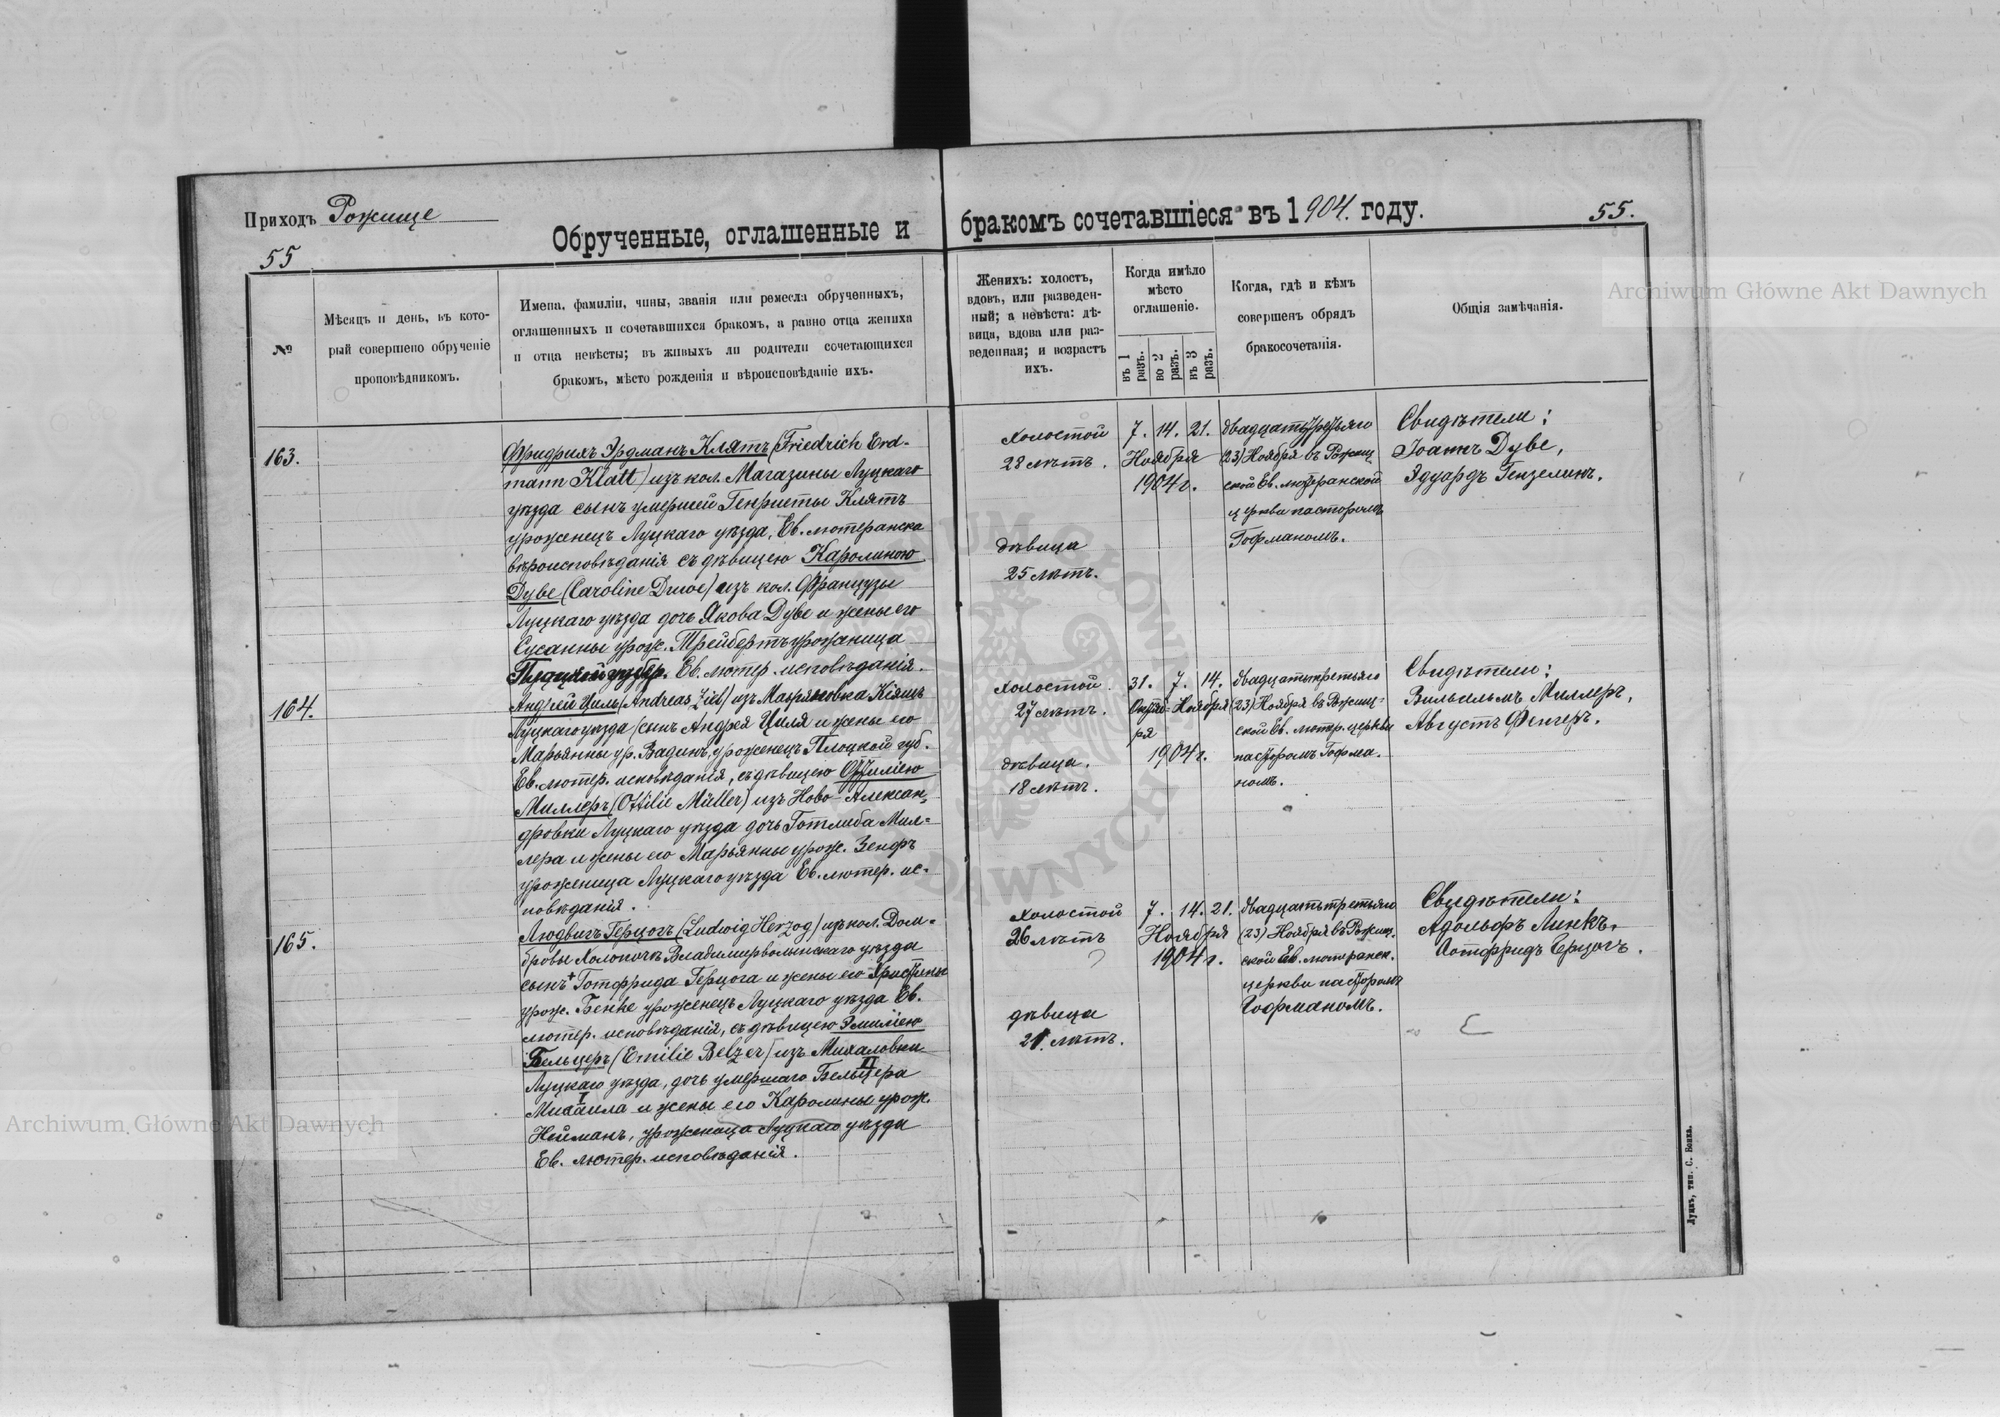 Приходъ Рожище
55
Обрученные, оглашенные и бракомъ сочетавшіеся въ 1904. году.
55.
№
Мѣсяцъ и день, въ кото-
рый совершено обрученіе
проповѣдникомъ.
Имена, фамиліи, чины, званія или ремесла обрученныхъ,
оглашенныхъ и сочетавшихся бракомъ, а равно отца жениха
и отца невѣсты; въ живыхъ ли родители сочетающихся
бракомъ, мѣсто рожденія и вѣроисповѣданіе ихъ.
Женихъ: холостъ,
вдовъ, или разведен-
ный; а невѣста: дѣ-
вица, вдова или раз-
веденная; и возрастъ
ихъ.
Когда имѣло
мѣсто
оглашеніе.
въ 1 разъ.
во 2 разъ.
въ 3 разъ.
Когда, гдѣ и кѣмъ
совершенъ обрядъ
бракосочетанія.
Общія замѣчанія.
163.
Фридрихъ Эрдманъ Клятъ (Friedrich Erd-
mann Klatt) изъ кол. Магазины Луцкаго
уѣзда сынъ умершей Генріеты Клятъ
уроженецъ Луцкаго уѣзда, Ев. лютеранска
вѣроисповѣданія съ дѣвицею Каролиною
Дуве (Caroline Duwe) изъ кол. Французы
Луцкаго уѣзда дочь Якова Дуве и жены его
Сусанны урож. Трейбертъ уроженица
Ев. лютер. исповѣданія.
Холостой
28 лѣтъ.
дѣвица
25 лѣтъ.
7. 14. 21.
Ноября
1904 г.
двадцатьтретьяго
(23) Ноября въ Рожищ
ской Ев. лютеранской
церкви пасторомъ
Гофманомъ.
Свидѣтели:
Іоаннъ Дуве,
Эдуардъ Гензелинъ.
164.
Андрей Циль (Andreas Ziel) изъ
Луцкаго уѣзда (сынъ Андрея Циля и жены его
Марьянны ур. Вадинъ, уроженецъ Плоцкой губ.
Ев. лютер. исповѣданія, съ дѣвицею Оттиліею
Миллеръ (Ottilie Müller) изъ Ново-Алексан-
дровки Луцкаго уѣзда дочь Готлиба Мил-
лера и жены его Марьянны урож. Зенфъ
уроженица Луцкаго уѣзда Ев. лютер. ис-
повѣданія.
Холостой
27 лѣтъ.
дѣвица.
18 лѣтъ.
31. 7. 14.
Октяб- Ноября
ря
1904 г.
двадцатьтретьяго
(23) Ноября въ Рожищ-
ской Ев. лютер. церкви
пасторомъ Гофма-
номъ.
Свидѣтели:
Вильгельмъ Миллеръ,
Августъ Фенгеръ.
165.
Людвигъ Герцогъ (Ludwig Herzog) изъ кол. Дом-
бровы Холопочъ Владимирволынскаго уѣзда
сынъ + Готфрида Герцога и жены его Христины
урож. Бенке уроженецъ Луцкаго уѣзда Ев.
лютер. исповѣданія, съ дѣвицею Эмиліею
Бельцеръ (Emilie Belzer) изъ Михаловки
Луцкаго уѣзда, дочь умершаго Бельцера
Михаила и жены его Каролины урож.
Нейманъ, уроженица Луцкаго уѣзда
Ев. лютер. исповѣданія.
Холостой
26 лѣтъ
дѣвица
21. лѣтъ.
7. 14. 21.
Ноября
1904 г.
двадцатьтретьяго
(23) Ноября въ Рожищ-
ской Ев. лютеранск.
церкви пасторомъ
Гофманомъ.
Свидѣтели:
Адольфъ Линкъ,
Готфридъ Ерцогъ.
Луцкъ, тип. С. Бонка.
Archiwum Główne Akt Dawnych
Archiwum Główne Akt Dawnych